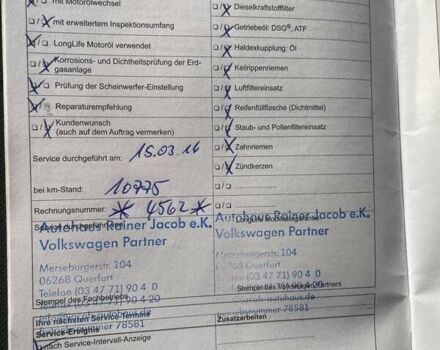 mit Motorölwechsel
mit erweitertem Inspektionsumfang
LongLife Motoröl verwendet
Korrosions- und Dichtheitsprüfung der Erd-
gasanlage
Prüfung der Scheinwerfer-Einstellung
Reparaturempfehlung
Kundenwunsch
(auch auf dem Auftrag vermerken)
Service durchgeführt am: 15.03.16
bei km-Stand: 10775
Rechnungsnummer: * 4562 *
Autohaus Rainer Jacob e.K.
Volkswagen Partner
Merseburgerstr. 104
06268 Querfurt
Telefon (03 47 71) 90 4 0
Stempel des Fachbetriebs
Telefax (03 47 71) 90 4 20
Ihre nächsten Service-Termine
Betriebsnummer 78581
Service-Ereignis
nach Service-Intervall-Anzeige
Dieselkraftstofffilter
Getriebeöl: DSG®, ATF
Haldexkupplung: Öl
Keilrippenriemen
Luftfiltereinsatz
Reifenfüllflasche (Dichtmittel)
Staub- und Pollenfiltereinsatz
Zahnriemen
Zündkerzen
Autohaus Rainer Jacob e.K.
Volkswagen Partner
Merseburgerstr. 104
06268 Querfurt
Telefon (03 47 71) 90 4 0
Stempel des Volkswagen Partners
Betriebsnummer 78581
Zusatzarbeiten